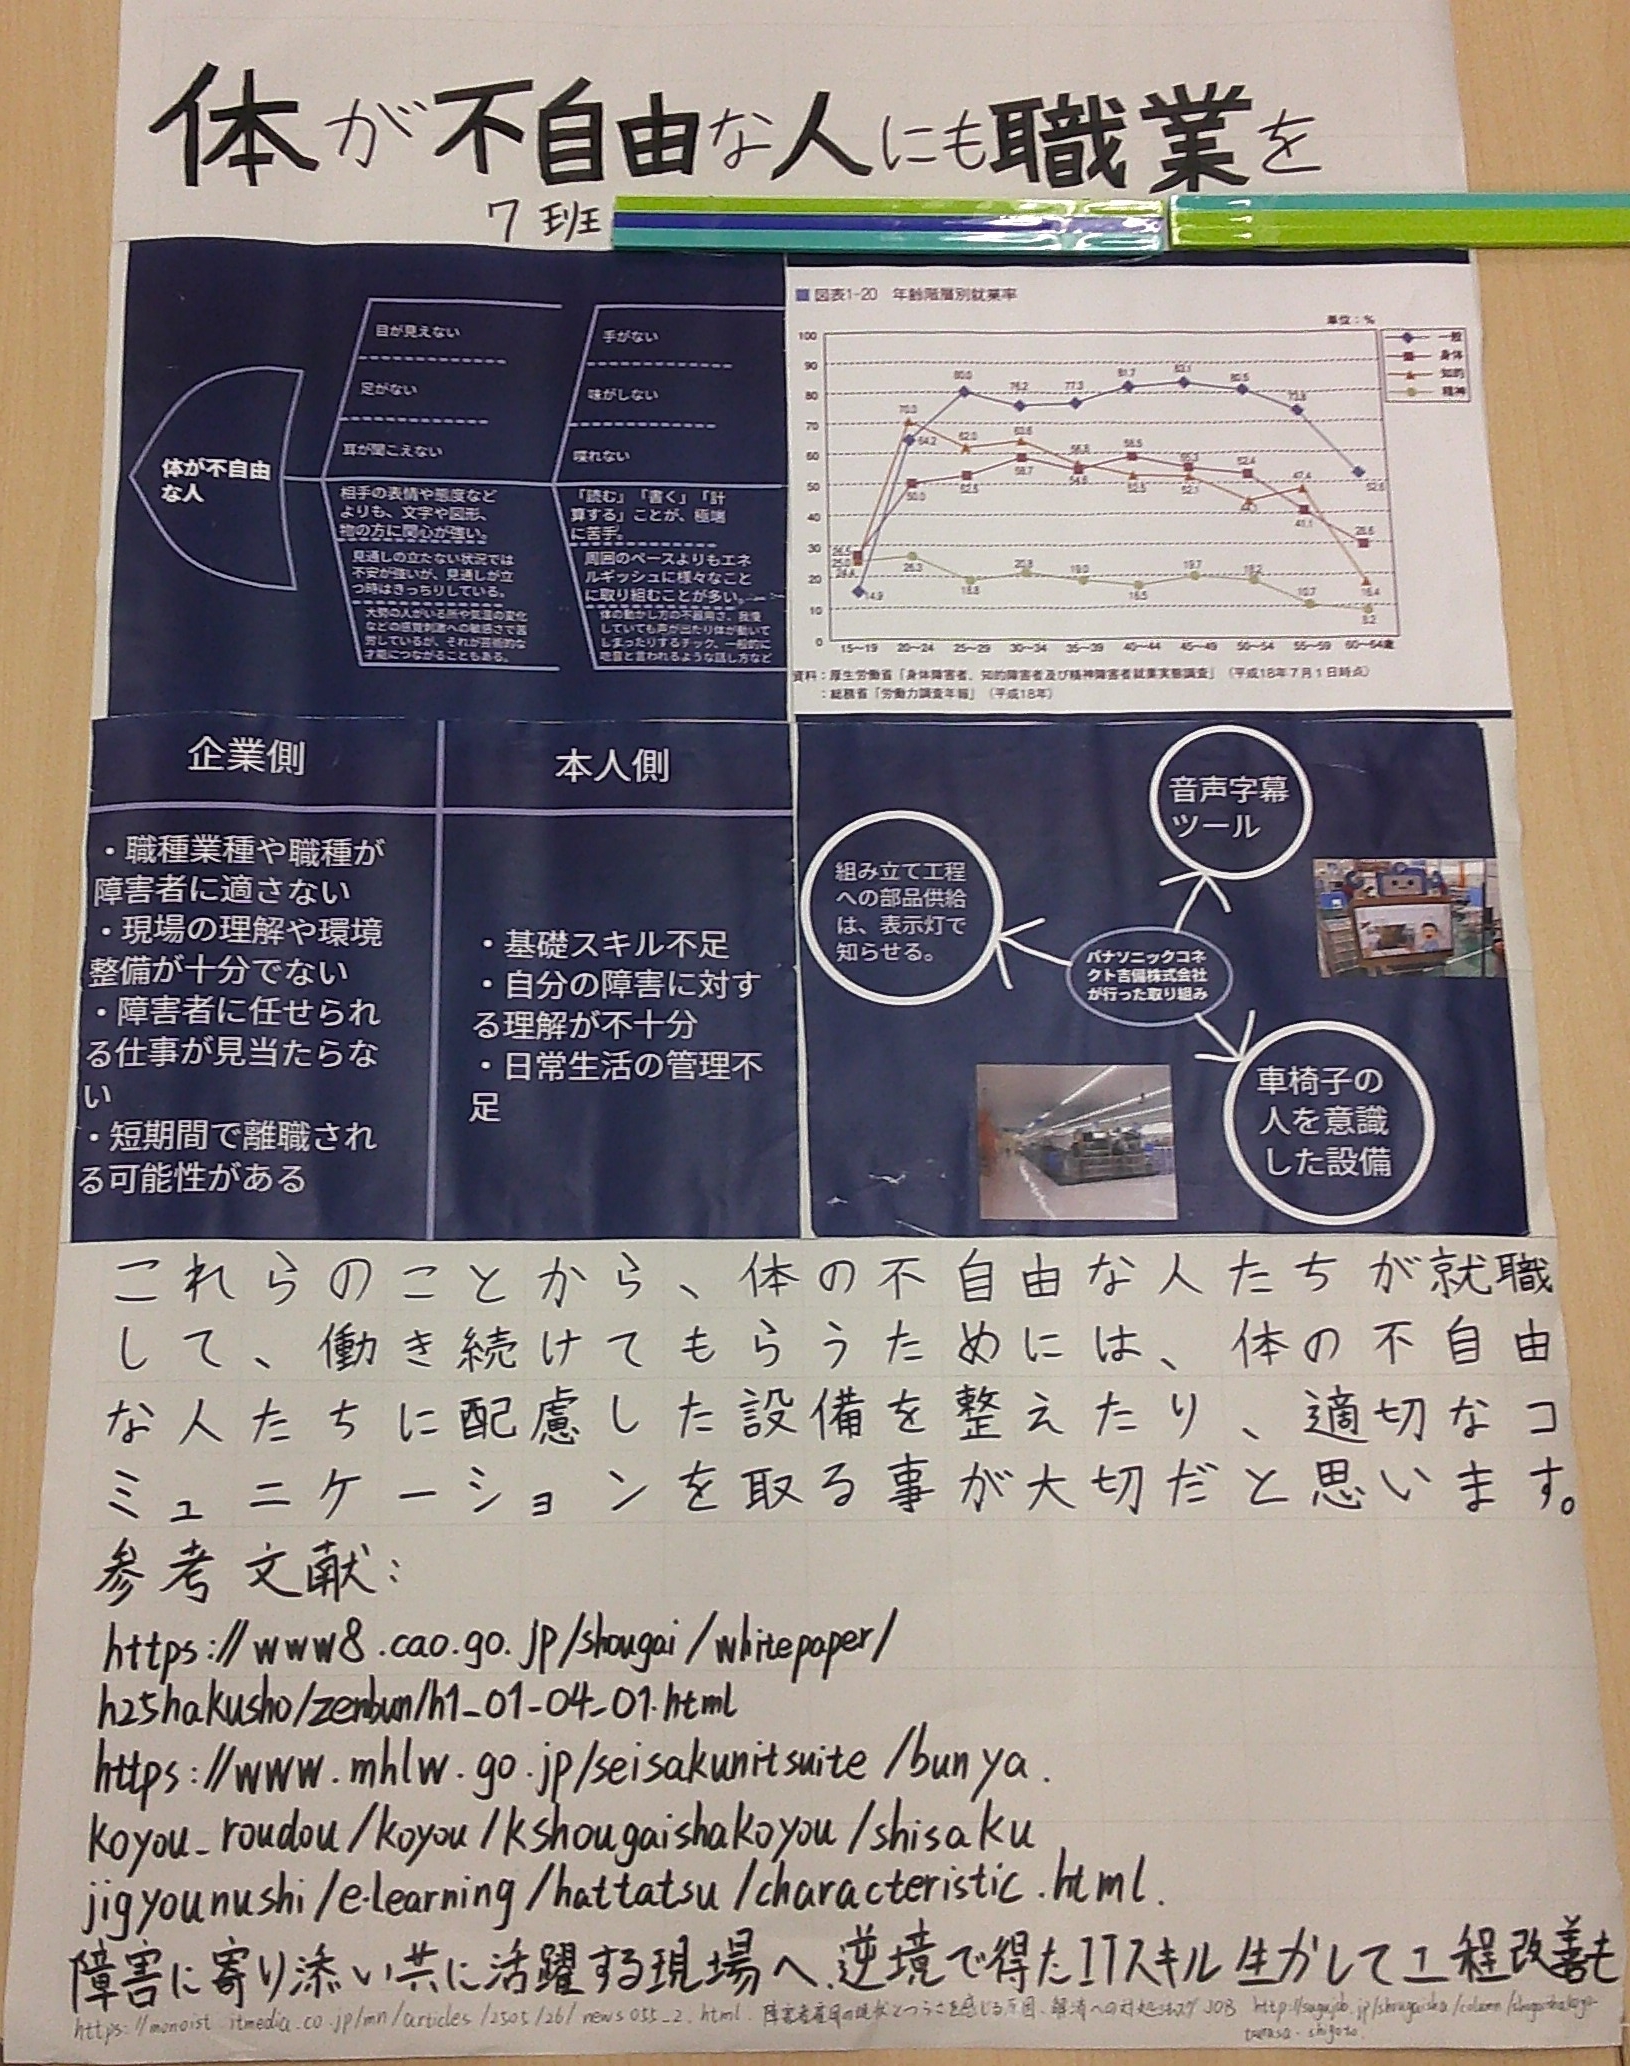 体が不自由な人にも職業を
7班
体が不自由
な人
目が見えない
足がない
耳が聞こえない
手がない
味がしない
喋れない
相手の表情や態度など
よりも、文字や図形、
物の方に関心が強い。
見通しの立たない状況では
不安が強いが、見通しが立
つ時はきっちりしている。
大勢の人がいる所や気温の変化
などの感覚刺激への敏感さで苦
労しているが、それが芸術的な
才能につながることもある。
「読む」「書く」「計
算する」ことが、極端
に苦手。
周囲のペースよりもエネ
ルギッシュに様々なこと
に取り組むことが多い。
体の動かし方の不器用さ、我慢
していても声が出たり体が動いて
しまったりするチック、一般的に
吃音と言われるような話し方など
図表1-20 年齢階層別就業率
単位：%
一般
身体
知的
精神
100
90
80
70
60
50
40
30
20
10
0
14.9
64.2
80.0
76.2
77.3
81.7
83.1
80.5
73.8
52.6
70.0
62.0
63.6
56.8
52.5
52.1
47.4
16.4
50.0
52.5
58.7
54.6
58.5
55.3
52.4
41.1
28.6
26.3
18.8
20.8
19.0
16.5
19.7
18.2
10.7
8.2
15〜19 20〜24 25〜29 30〜34 35〜39 40〜44 45〜49 50〜54 55〜59 60〜64歳
資料：厚生労働省「身体障害者、知的障害者及び精神障害者就業実態調査」（平成18年7月1日時点）
：総務省「労働力調査年報」（平成18年）
企業側
・職種業種や職種が
障害者に適さない
・現場の理解や環境
整備が十分でない
・障害者に任せられ
る仕事が見当たらな
い
・短期間で離職され
る可能性がある
本人側
・基礎スキル不足
・自分の障害に対す
る理解が不十分
・日常生活の管理不
足
音声字幕
ツール
組み立て工程
への部品供給
は、表示灯で
知らせる。
パナソニックコネ
クト吉備株式会社
が行った取り組み
車椅子の
人を意識
した設備
これらのことから、体の不自由な人たちが就職
して、働き続けてもらうためには、体の不自由
な人たちに配慮した設備を整えたり、適切なコ
ミュニケーションを取る事が大切だと思います。
参考文献：
https://www8.cao.go.jp/shougai/whitepaper/
h25hakusho/zenbun/h1_01-04-01.html
https://www.mhlw.go.jp/seisakunitsuite/bunya.
koyou_roudou/koyou/kshougaishakoyou/shisaku
jigyounushi/e-learning/hattatsu/characteristic.html.
障害に寄り添い共に活躍する現場へ、逆境で得たITスキル生かして工程改善も
https://monoist.itmedia.co.jp/mn/articles/2505/26/news055_2.html.